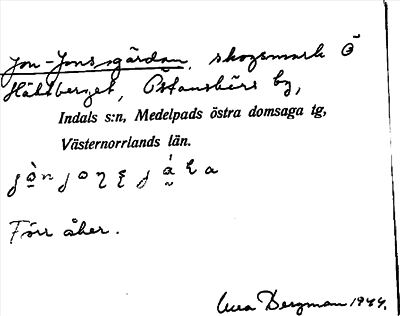 Jon-Jonsgärdan, skogsmark Ö
Hältberget, Östansbärs by,
Indals s:n, Medelpads östra domsaga tg,
Västernorrlands län.
Förr åker.
Bergman 1944.